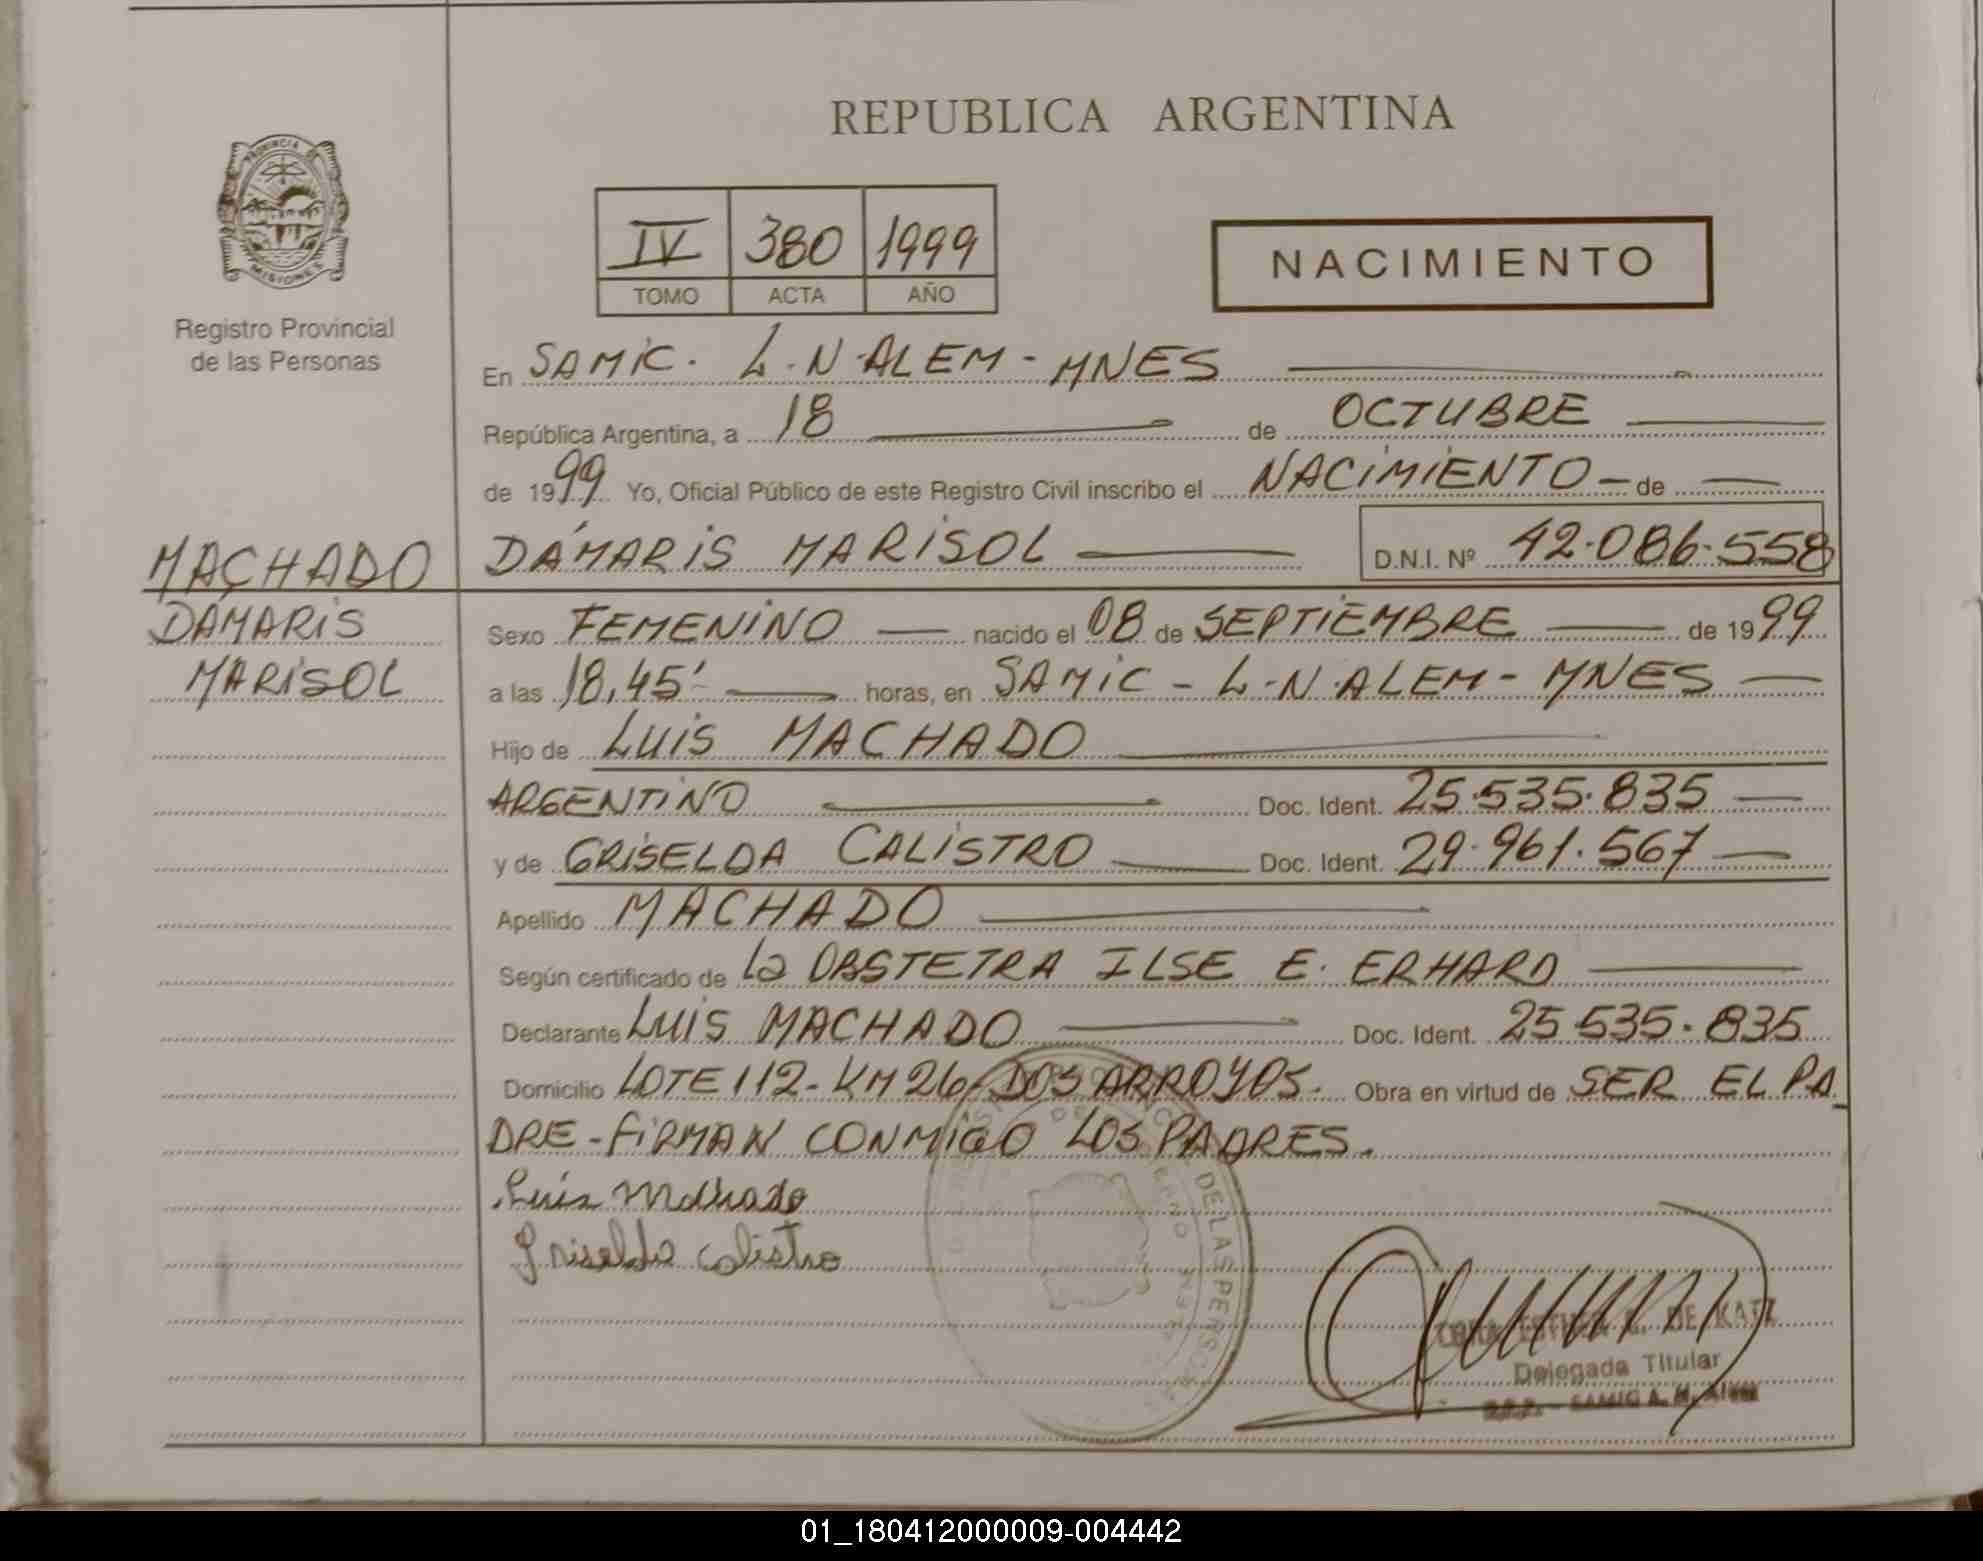 REPUBLICA ARGENTINA
PROVINCIA DE
MISIONES
Registro Provincial
de las Personas
IV 380 1999
TOMO ACTA AÑO
NACIMIENTO
En SAMIC. L.N.ALEM - MNES
República Argentina, a 18 de OCTUBRE
de 1999 Yo, Oficial Público de este Registro Civil inscribo el NACIMIENTO - de
DÁMARIS MARISOL D.N.I. Nº 42.086.558
MACHADO
DÁMARIS
MARISOL
Sexo FEMENINO nacido el 08 de SEPTIEMBRE de 1999
a las 18,45' horas, en SAMIC - L.N.ALEM - MNES
Hijo de LUIS MACHADO
ARGENTINO Doc. Ident. 25.535.835
y de GRISELDA CALISTRO Doc. Ident. 29.961.567
Apellido MACHADO
Según certificado de la OBSTETRA ILSE E. ERHARD
Declarante LUIS MACHADO Doc. Ident. 25.535.835
Domicilio LOTE 112 - KM 26 - DOS ARROYOS. Obra en virtud de SER EL PA
DRE - FIRMAN CONMIGO LOS PADRES.
Luis Machado
Griselda Calistro
DE LAS PERSONAS
ESTHER DE KATZ
Delegada Titular
SAMIC
01_180412000009-004442